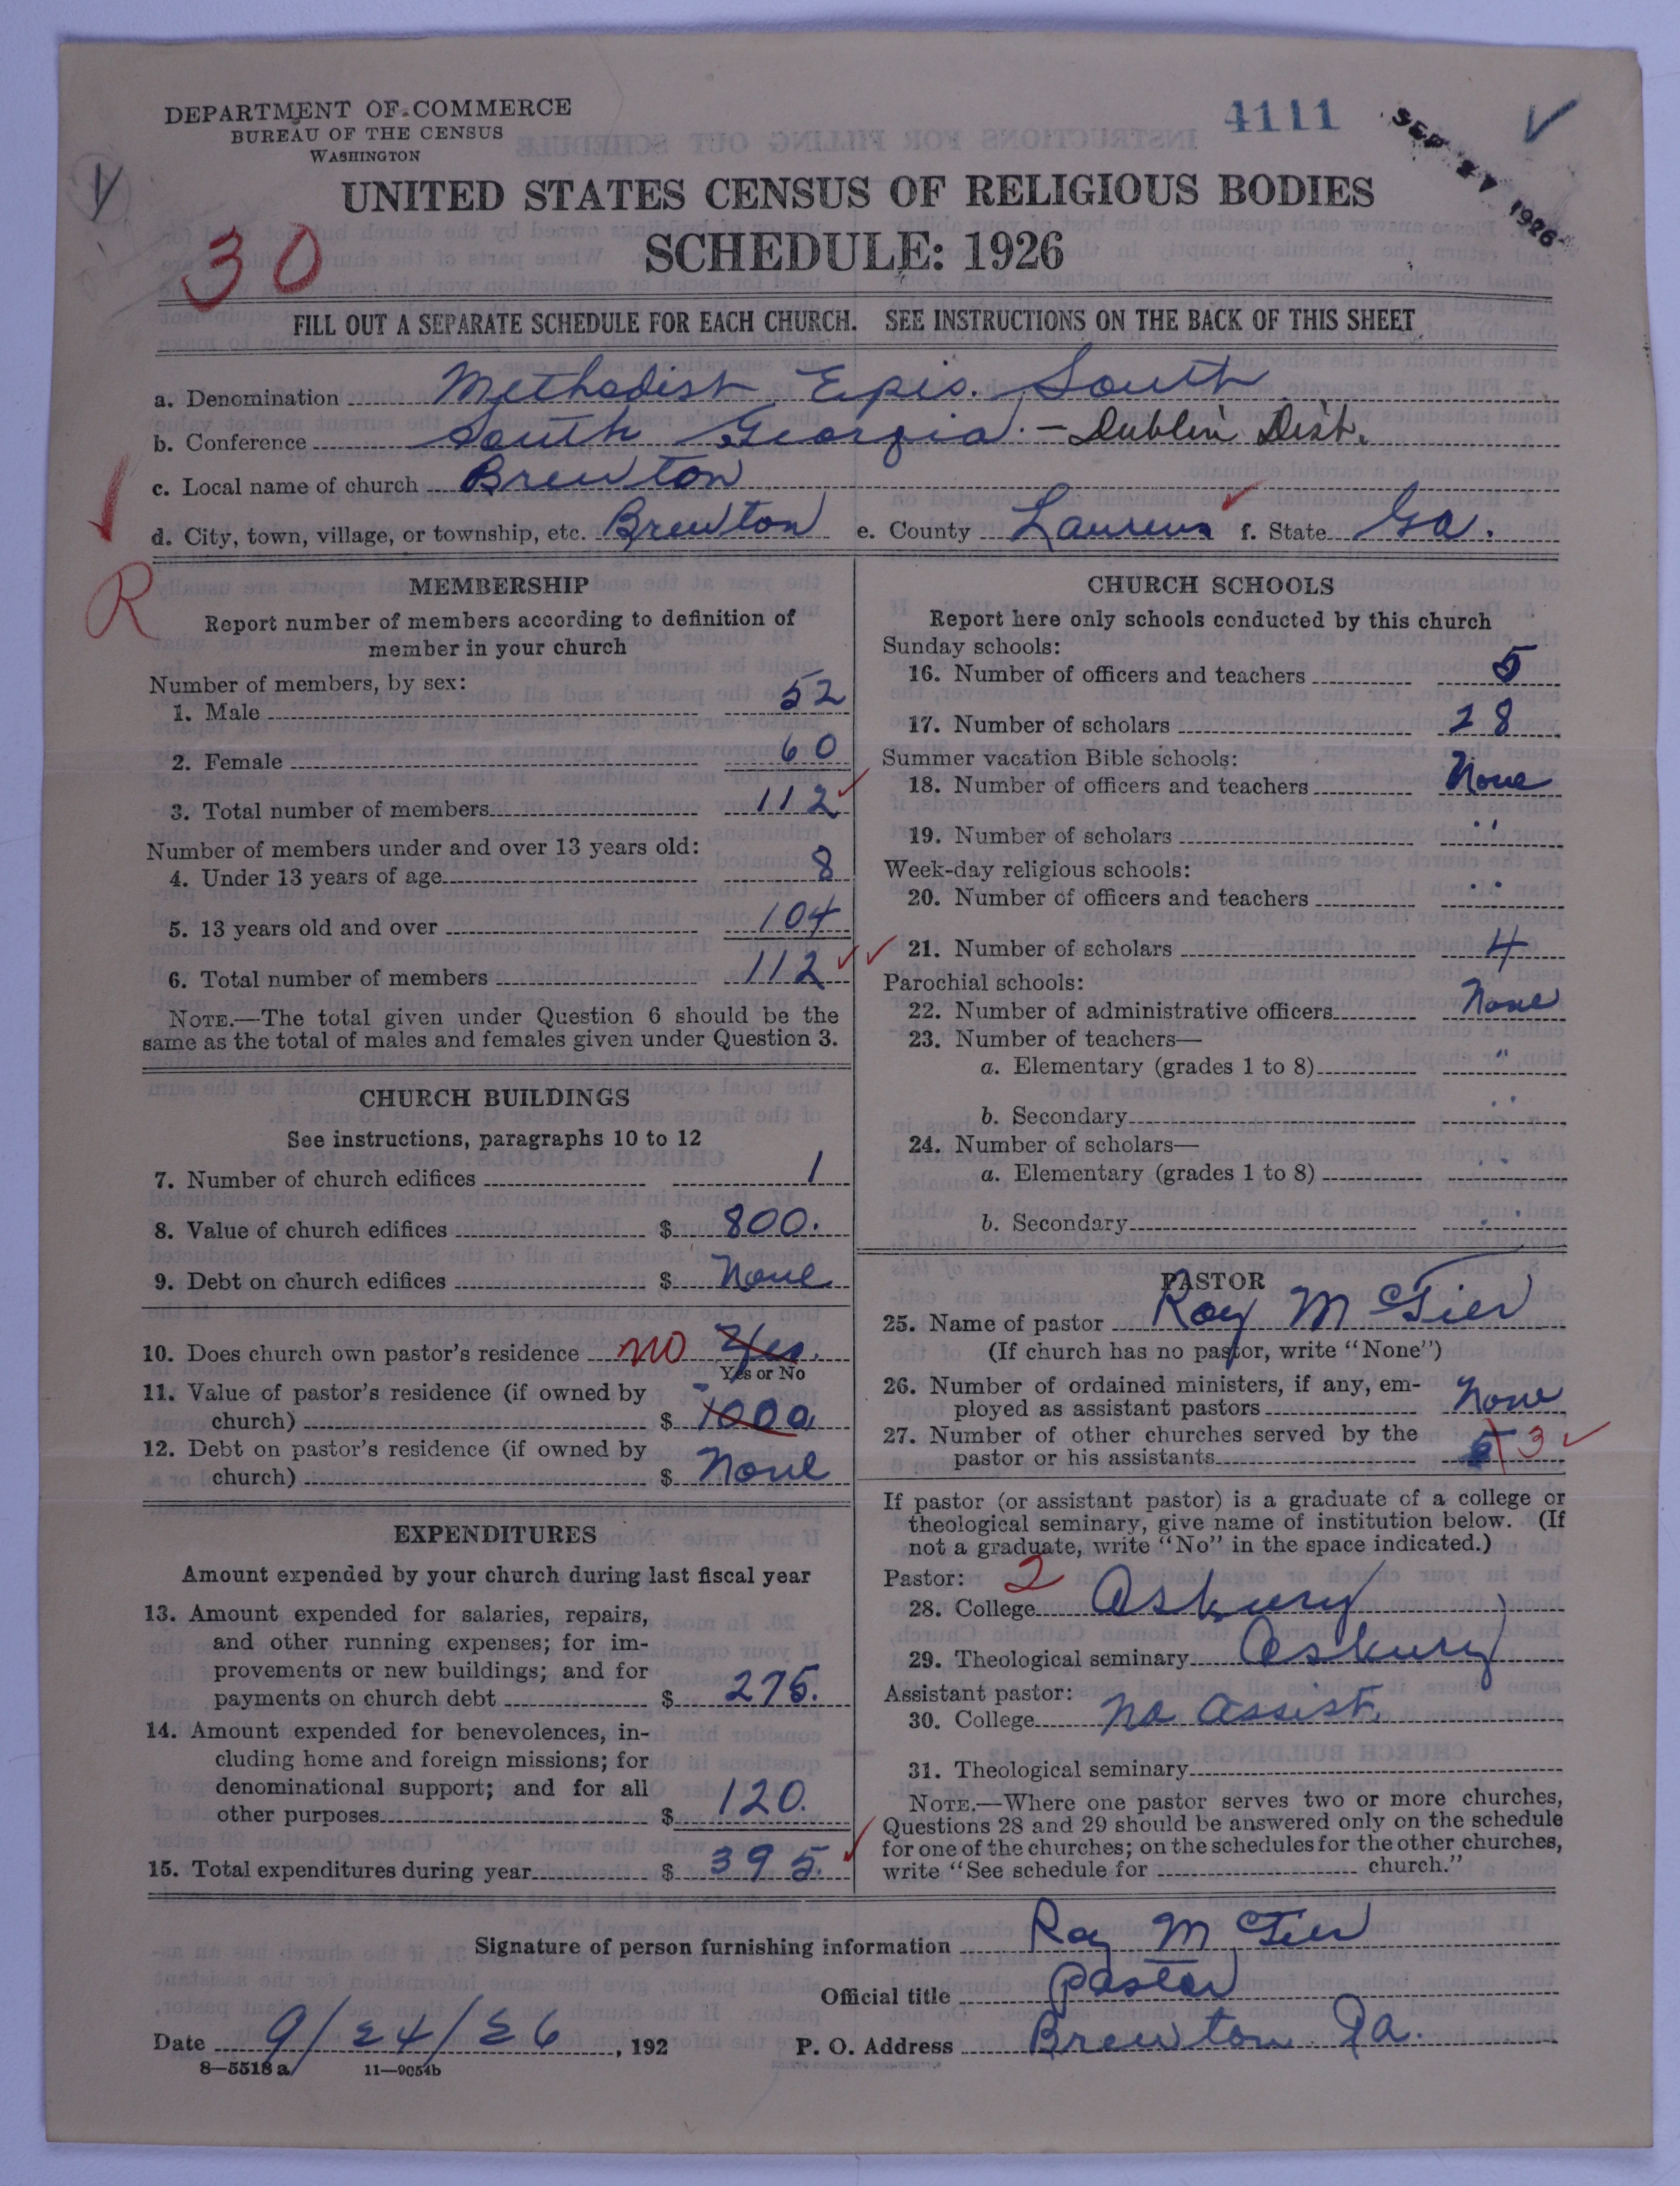 DEPARTMENT OF COMMERCE
BUREAU OF THE CENSUS
WASHINGTON
4111
SEP 27 1926
UNITED STATES CENSUS OF RELIGIOUS BODIES
30
SCHEDULE: 1926
FILL OUT A SEPARATE SCHEDULE FOR EACH CHURCH. SEE INSTRUCTIONS ON THE BACK OF THIS SHEET
a. Denomination Methodist Epis. South
b. Conference South Georgia - Dublin Dist.
c. Local name of church Brewton
d. City, town, village, or township, etc. Brewton e. County Laurens f. State Ga.
R
MEMBERSHIP
Report number of members according to definition of
member in your church
Number of members, by sex:
1. Male 52
2. Female 60
3. Total number of members 112
Number of members under and over 13 years old:
4. Under 13 years of age 8
5. 13 years old and over 104
6. Total number of members 112
NOTE.—The total given under Question 6 should be the
same as the total of males and females given under Question 3.
CHURCH BUILDINGS
See instructions, paragraphs 10 to 12
7. Number of church edifices 1
8. Value of church edifices $ 800.
9. Debt on church edifices $ None
10. Does church own pastor's residence no Yes.
Yes or No
11. Value of pastor's residence (if owned by
church) $ 1000
12. Debt on pastor's residence (if owned by
church) $ None
EXPENDITURES
Amount expended by your church during last fiscal year
13. Amount expended for salaries, repairs,
and other running expenses; for im-
provements or new buildings; and for
payments on church debt $ 275.
14. Amount expended for benevolences, in-
cluding home and foreign missions; for
denominational support; and for all
other purposes $ 120.
15. Total expenditures during year $ 395.
CHURCH SCHOOLS
Report here only schools conducted by this church
Sunday schools:
16. Number of officers and teachers 5
17. Number of scholars 28
Summer vacation Bible schools:
18. Number of officers and teachers None
19. Number of scholars "
Week-day religious schools:
20. Number of officers and teachers "
21. Number of scholars 4
Parochial schools:
22. Number of administrative officers None
23. Number of teachers—
a. Elementary (grades 1 to 8) "
b. Secondary "
24. Number of scholars—
a. Elementary (grades 1 to 8) "
b. Secondary "
PASTOR
25. Name of pastor Roy McTier
(If church has no pastor, write "None")
26. Number of ordained ministers, if any, em-
ployed as assistant pastors None
27. Number of other churches served by the
pastor or his assistants 3
If pastor (or assistant pastor) is a graduate of a college or
theological seminary, give name of institution below. (If
not a graduate, write "No" in the space indicated.)
Pastor: 2
28. College Asbury
29. Theological seminary Asbury
Assistant pastor:
30. College No Assist.
31. Theological seminary
NOTE.—Where one pastor serves two or more churches,
Questions 28 and 29 should be answered only on the schedule
for one of the churches; on the schedules for the other churches,
write "See schedule for church."
Signature of person furnishing information Roy McTier
Official title Pastor
Date 9/24/26, 192 P. O. Address Brewton Ga.
8—5518 a 11—9054b